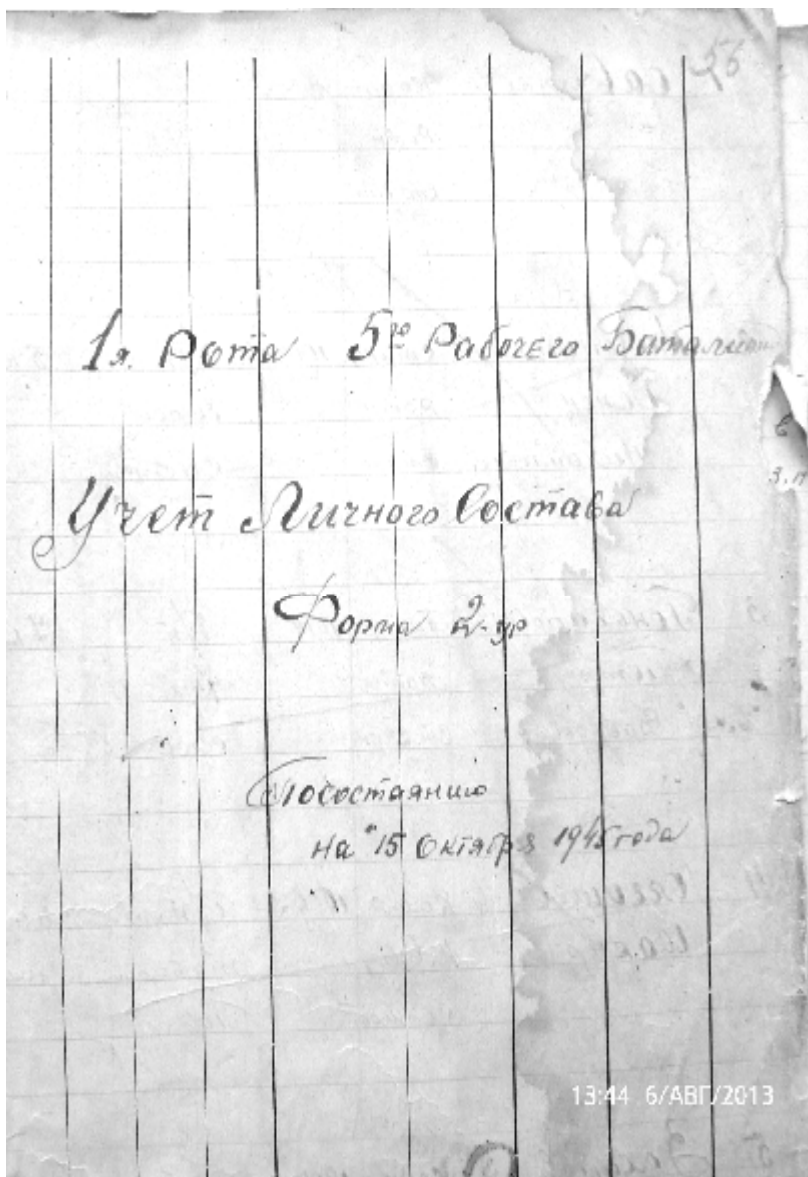 56
1я. Рота 5го Рабочего Батальона
Учет Личного Состава
Форма 2-ур
По состоянию
на "15 Октября 1945 года
13:44 6/АВГ/2013